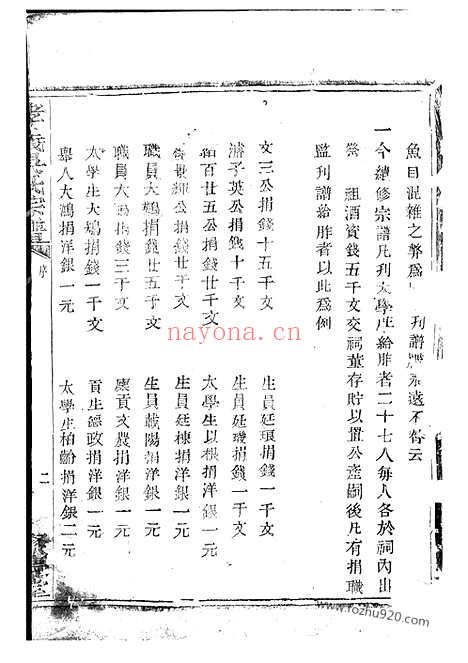 魚目混雜之弊爲 刊譜 永遠不替云
一今續修宗譜凡刊太學生給胙者二十七人每人各於祠內出
祭 祖酒資錢五千文交祠董存貯以置公產嗣後凡有捐職
監刊譜給胙者以此爲例
文三公捐錢十五千文
濟子英公捐錢十千文
百廿五公捐錢廿千文
公捐錢廿五千文
職員大鵾捐錢廿五千文
職員大鵬捐錢三千文
太學生大鳩捐錢一千文
舉人大鴻捐洋銀一元
生員廷琅捐錢一千文
生員廷璣捐錢一千文
太學生以根捐洋銀一元
生員廷棟捐洋銀一元
生員載陽捐洋銀一元
廩貢文農捐洋銀一元
貢生德政捐洋銀一元
太學生柏齡捐洋銀二元
序
二
nayona.cn
www.fozhu920.com